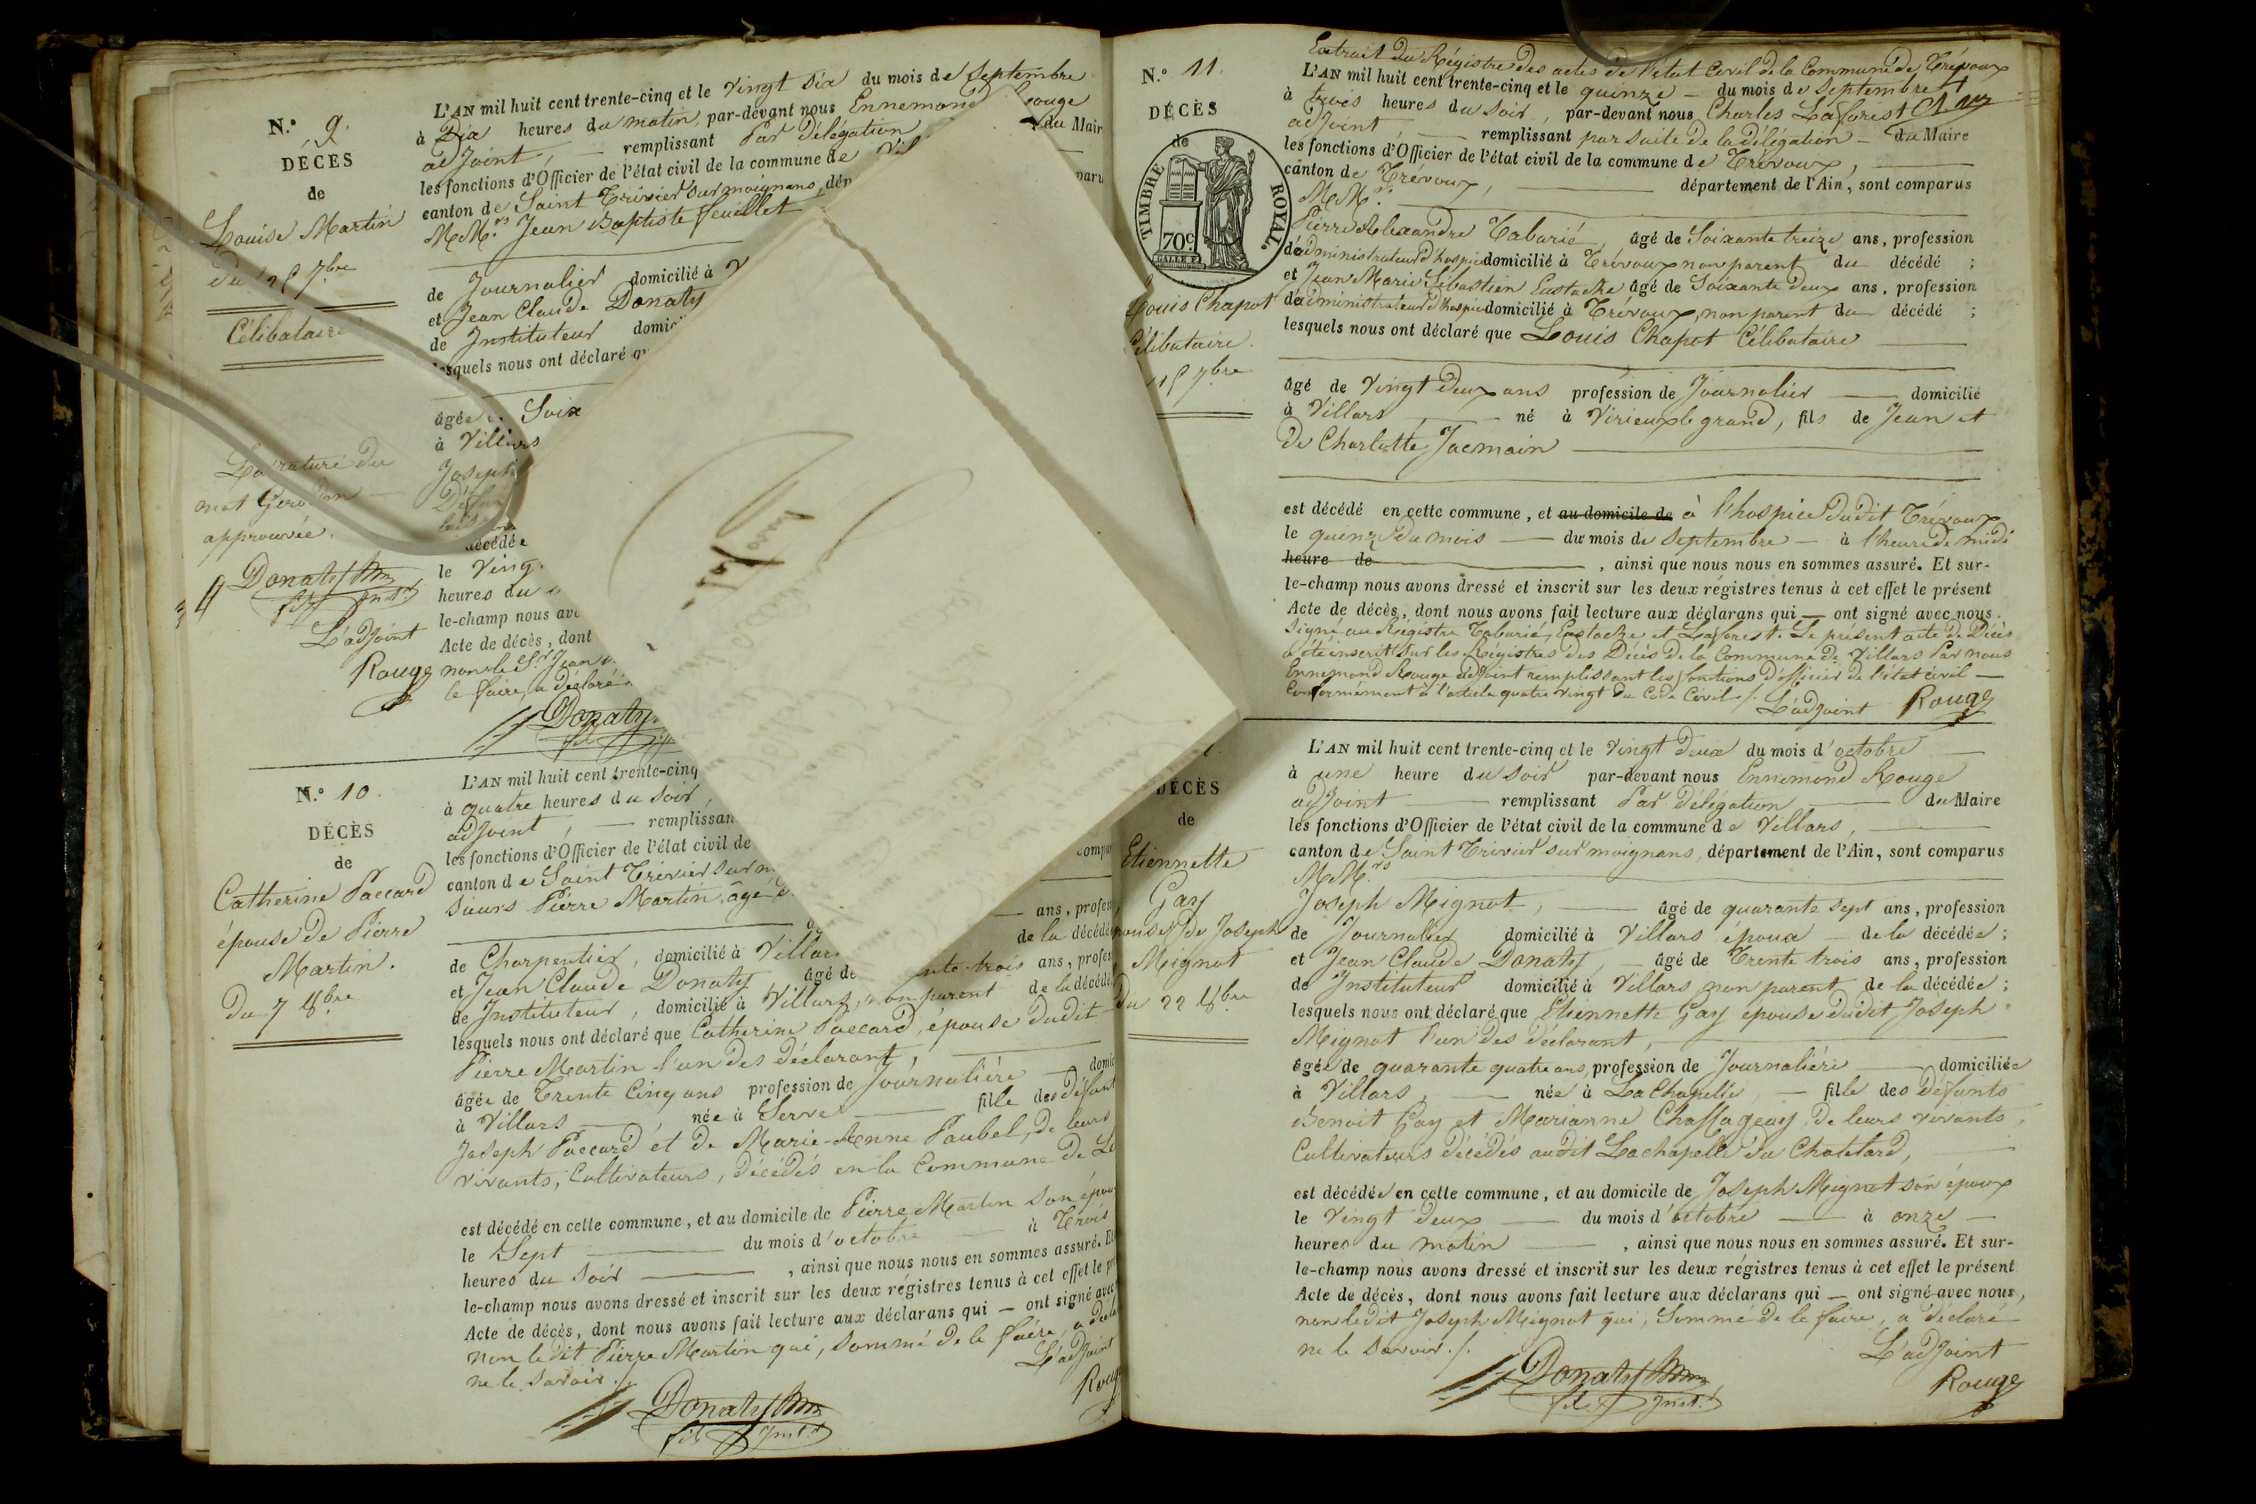 N.° 9.
DÉCÈS
de
Louise Martin
du 25 7bre
Célibataire
La rature du
mot
approuvée.
Donaty
fils inst.
L'adjoint
Rouge
L'AN mil huit cent trente-cinq et le vingt six du mois de Septembre
à Dix heures du matin, par-devant nous Ennemond Rouge
adjoint, remplissant Par délégation du Mair
les fonctions d'Officier de l'état civil de la commune de Vil
canton de Saint Trivier sur moignans, dép paru
M.M.rs Jean Baptiste feuillet
de Journalier domicilié à V
et Jean Claude Donaty
de Instituteur domici
lesquels nous ont déclaré qu
âgée de Soix
à Villars
Joseph
Défun
décédée
le Ving
heures du
le-champ nous avo
Acte de décès, dont
non le Sr Jean
le faire, a déclaré
Donaty
N.° 10.
DÉCÈS
de
Catherine Paccard
épouse de Pierre
Martin.
Du 7 8bre
L'AN mil huit cent trente-cinq
à quatre heures du soir,
adjoint, remplissan
les fonctions d'Officier de l'état civil de
canton de Saint Trivier sur m compa
Sieurs Pierre Martin, âgé d
ans, profes
de Charpentier, domicilié à Villars de la décédé
et Jean Claude Donaty âgé de trente trois ans, profes
de Instituteur, domicilié à Villars, non parent de la décédé
lesquels nous ont déclaré que Catherine Paccard, épouse dudit
Pierre Martin l'un des déclarant,
âgée de Trente Cinq ans profession de Journalière domic
à Villars née à Serve fille des défunt
Joseph Paccard et de Marie-Anne Paubel, de leurs
vivants, Cultivateurs, décédés en la Commune de Se
est décédé en cette commune, et au domicile de Pierre Martin son épou
le Sept du mois d'octobre à Trois
heures du soir, ainsi que nous nous en sommes assuré. Et
le-champ nous avons dressé et inscrit sur les deux régistres tenus à cet effet le pr
Acte de décès, dont nous avons fait lecture aux déclarans qui — ont signé avec
non ledit Pierre Martin qui, sommé de le faire, a décla
ne le savoir ./.
L'adjoint
Donaty
fils inst.
Roug
N.° 11.
DÉCÈS
de
TIMBRE ROYAL.
70c
Louis Chapot
Célibataire.
15 7bre
Extrait du Régistre des actes de l'état Civil de la Commune de Trévoux
L'AN mil huit cent trente-cinq et le quinze du mois de Septembre
à trois heures du soir, par-devant nous Charles Laforest
adjoint remplissant par suite de la délégation du Maire
les fonctions d'Officier de l'état civil de la commune de Trévoux,
canton de Trévoux, département de l'Ain, sont comparus
M.M.rs
Pierre Alexandre Tabarié âgé de Soixante treize ans, profession
d'administrateur d'hospice domicilié à Trévoux non parent du décédé ;
et Jean Marie Sébastien Eustache âgé de Soixante deux ans, profession
d'administrateur d'hospice domicilié à Trévoux, non parent du décédé ;
lesquels nous ont déclaré que Louis Chapot Célibataire
âgé de Vingt deux ans profession de Journalier domicilié
à Villars né à Virieux le grand, fils de Jean et
de Charlotte Jacmain
est décédé en cette commune, et au domicile de à l'hospice dudit Trévoux
le quinze du mois du mois de Septembre à l'heure de midi
heure de, ainsi que nous nous en sommes assuré. Et sur-
le-champ nous avons dressé et inscrit sur les deux régistres tenus à cet effet le présent
Acte de décès, dont nous avons fait lecture aux déclarans qui — ont signé avec nous.
Signé au Régistre Tabarié, Eustache et Laforest. Le présent acte de Décès
a été inscrit sur les Régistres des Décès de la Commune de Villars Par nous
Ennemond Rouge adjoint remplissant les fonctions d'officier de l'état civil
Conformément à l'article quatre vingt du Code Civil ./. L'adjoint Rouge
DÉCÈS
de
Etiennette
Gay
épouse de Joseph
Mignot
Du 22 8bre
L'AN mil huit cent trente-cinq et le Vingt deux du mois d'octobre
à une heure du soir par-devant nous Ennemond Rouge
adjoint remplissant Par délégation du Maire
les fonctions d'Officier de l'état civil de la commune de Villars,
canton de Saint Trivier sur moignans, département de l'Ain, sont comparus
M.M.rs
Joseph Mignot, âgé de quarante sept ans, profession
de Journalier domicilié à Villars époux de la décédée ;
et Jean Claude Donaty, âgé de Trente trois ans, profession
de Instituteur domicilié à Villars non parent de la décédée ;
lesquels nous ont déclaré que Etiennette Gay épouse dudit Joseph
Mignot l'un des déclarant,
âgée de quarante quatre ans, profession de Journalière domiciliée
à Villars, née à La Chapelle, fille des défunts
Benoit Gay et Marianne Chassageay de leurs vivants,
Cultivateurs décédés audit Lachapelle du Chatelard,
est décédée en cette commune, et au domicile de Joseph Mignot son époux
le Vingt deux du mois d'octobre à onze
heures du matin, ainsi que nous nous en sommes assuré. Et sur-
le-champ nous avons dressé et inscrit sur les deux régistres tenus à cet effet le présent
Acte de décès, dont nous avons fait lecture aux déclarans qui — ont signé avec nous,
non ledit Joseph Mignot qui, Sommé de le faire, a déclaré
ne le savoir ./.
L'adjoint
Donaty
fils inst.
Rouge